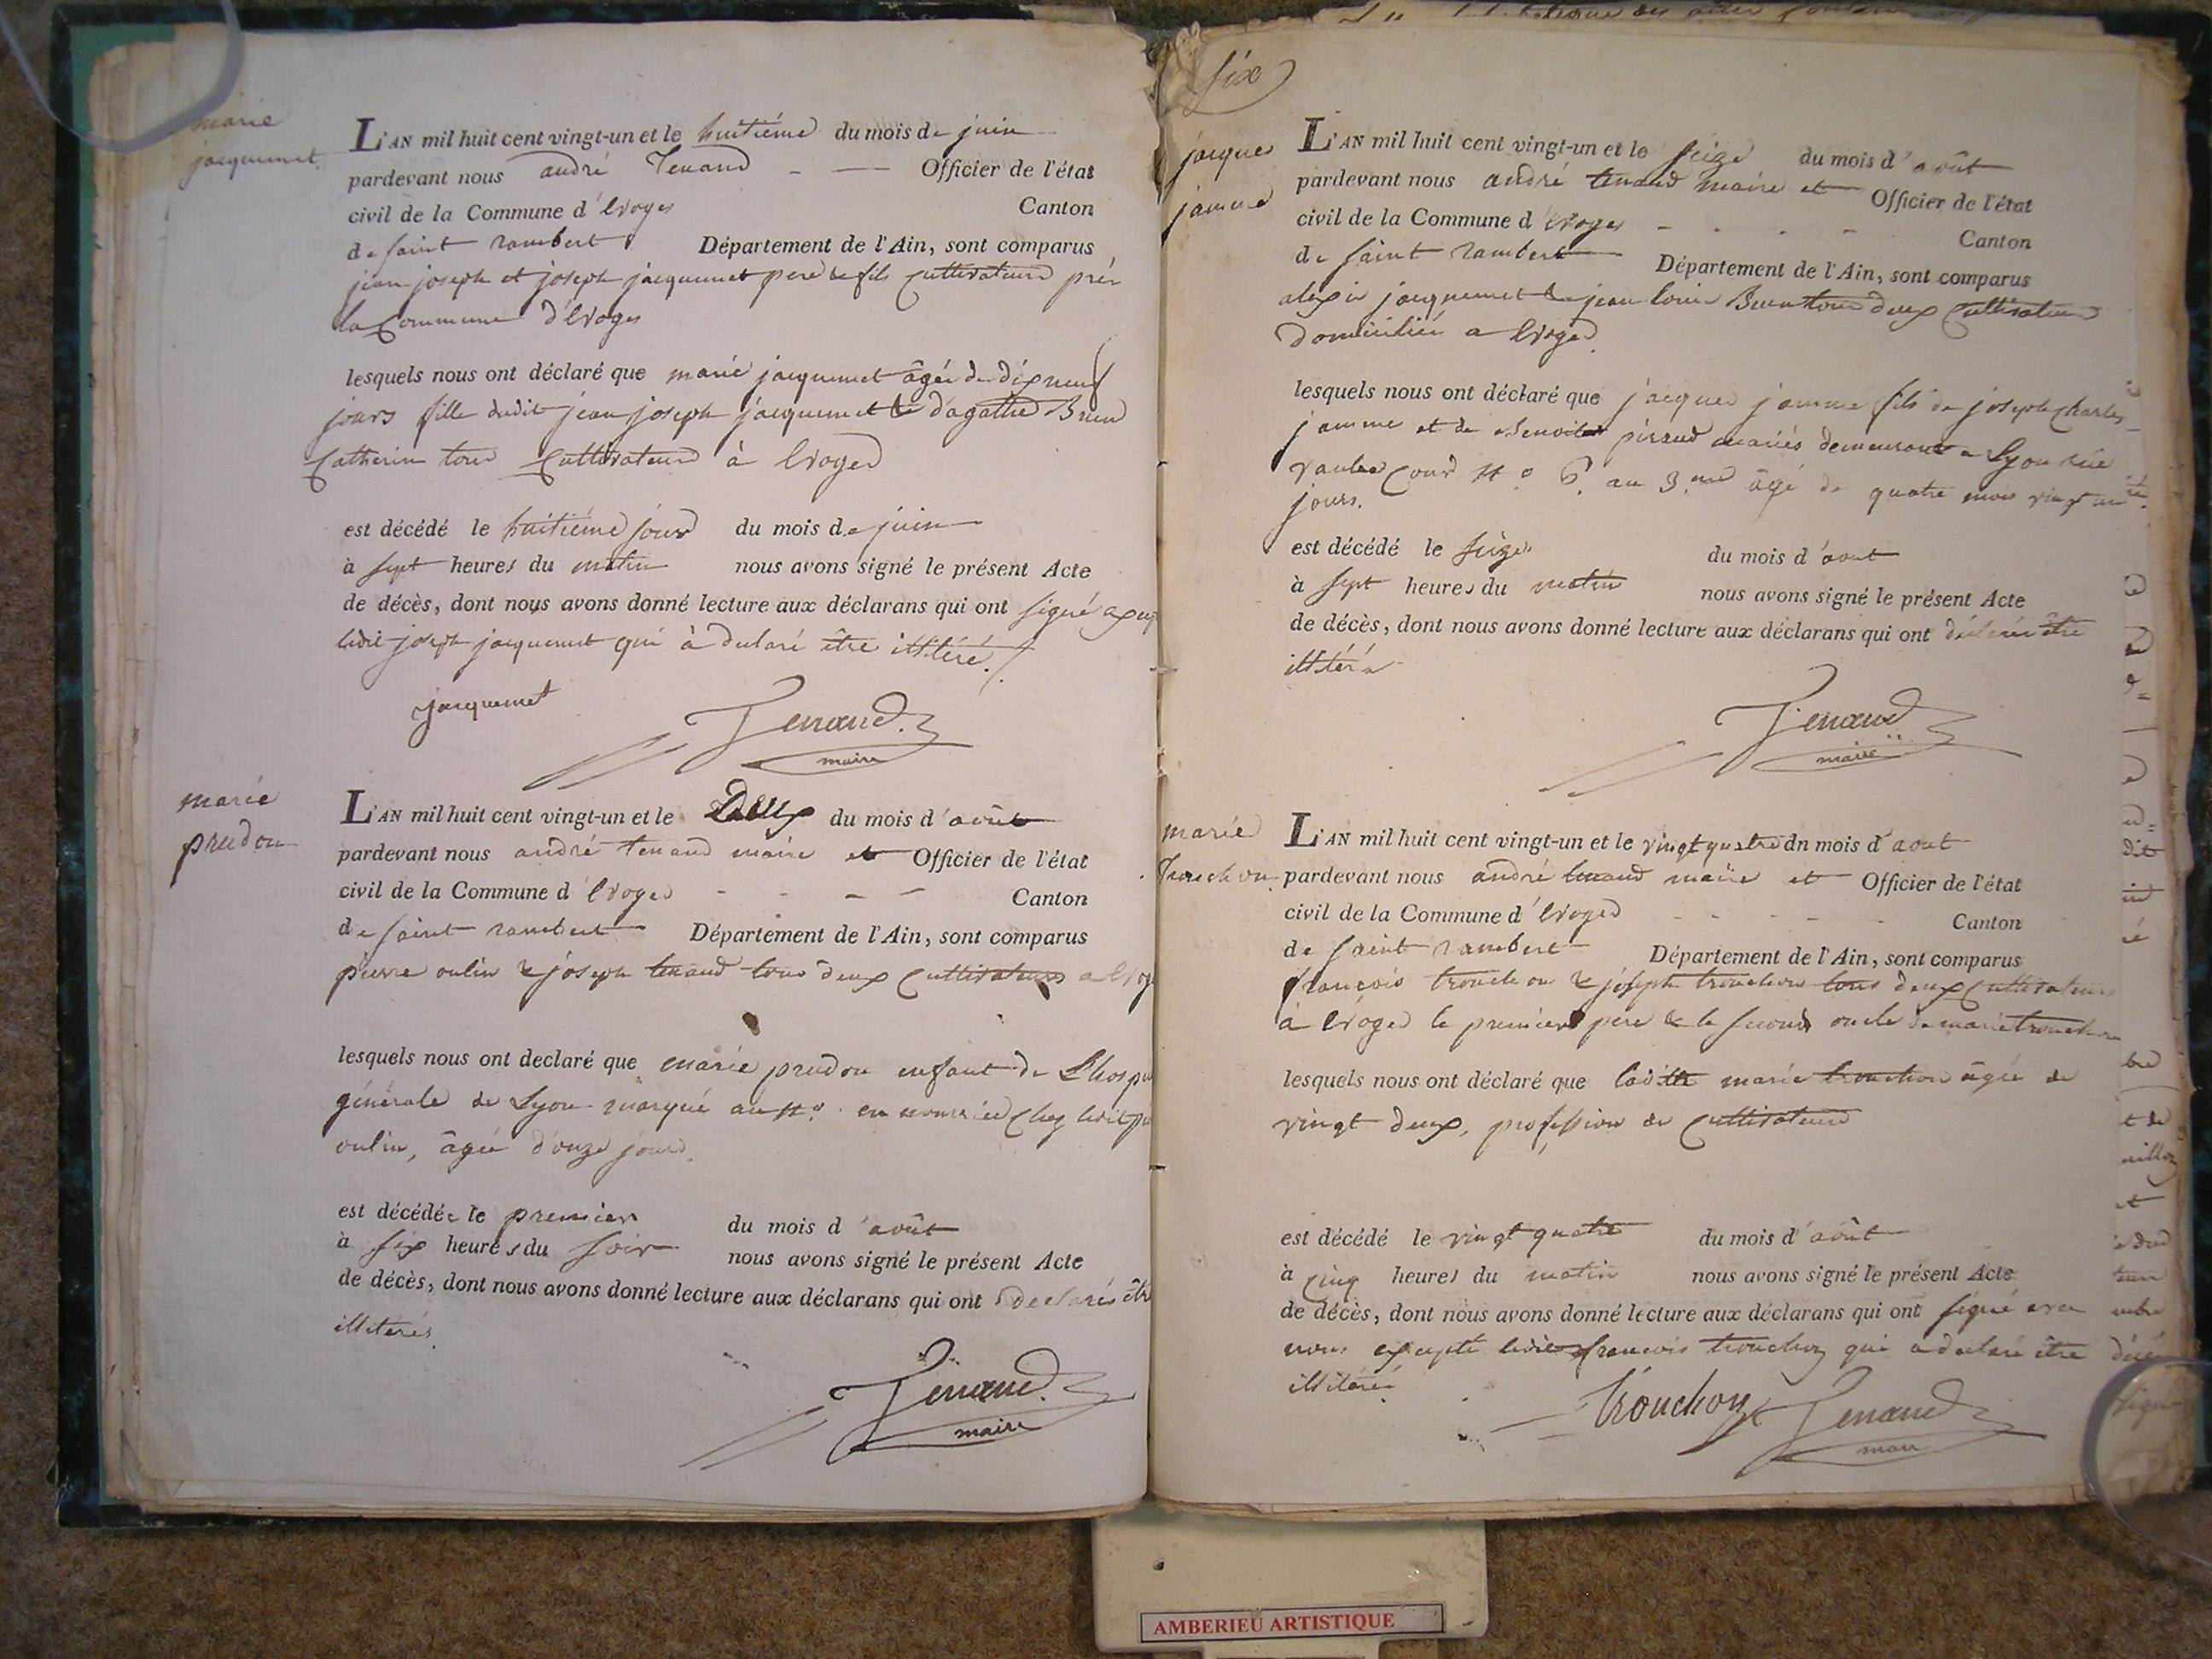 marie
jacquemet
L'AN mil huit cent vingt-un et le huitiéme du mois de juin
pardevant nous andré Tenand Officier de l'état
civil de la Commune d'Evoges Canton
de saint rambert Département de l'Ain, sont comparus
jean joseph et joseph jacquemet pere & fils Cultivateurs
la Commune d'Evoges
lesquels nous ont déclaré que marie jacquemet âgée de dix neuf
jours fille dudit jean joseph jacquemet & d'agathe
Catherin tous Cultivateurs à Evoges
est décédé le huitiéme jour du mois de juin
à sept heures du matin nous avons signé le présent Acte
de décès, dont nous avons donné lecture aux déclarans qui ont signé
ledit joseph jacquemet qui à déclaré être illitéré.
jacquemet
Tenand
maire
marie
prudon
L'AN mil huit cent vingt-un et le Deux du mois d'août
pardevant nous andré tenand maire et Officier de l'état
civil de la Commune d'Evoges Canton
de saint rambert Département de l'Ain, sont comparus
pierre oulin & joseph tenand tous deux Cultivateurs a
lesquels nous ont declaré que marie prudon enfant de
générale de Lyon marqué au N.º en nourrice Chez ledit
oulin, âgée d'onze jours.
est décédée le premier du mois d'août
à six heures du soir nous avons signé le présent Acte
de décès, dont nous avons donné lecture aux déclarans qui ont declarés
illiterés.
Tenand
maire
six
jacques
jamme
L'AN mil huit cent vingt-un et le seize du mois d'août
pardevant nous andré tenand maire et Officier de l'état
civil de la Commune d'Evoges Canton
de saint rambert Département de l'Ain, sont comparus
alexis jacquemet & jean louis deux Cultivateurs
domiciliés a Evoges
lesquels nous ont déclaré que jacques jamme fils de joseph Charles
jamme et de mariés demeurant a Lyon rüe
N.º 6. au 3.me âgé de quatre mois vingt
jours.
est décédé le seize du mois d'aout
à sept heures du matin nous avons signé le présent Acte
de décès, dont nous avons donné lecture aux déclarans qui ont déclarés être
illitérés
Tenand
maire
marie
Trouchon
L'AN mil huit cent vingt-un et le vingt quatre du mois d'aout
pardevant nous andré tenand maire et Officier de l'état
civil de la Commune d'Evoges Canton
de saint rambert Département de l'Ain, sont comparus
françois trouchon & joseph trouchon tous deux Cultivateurs
à Evoges le premier pere & le second oncle de marie trouchon
lesquels nous ont déclaré que ladite marie trouchon âgée de
vingt deux, profession de Cultivateur
est décédé le vingt quatre du mois d'août
à cinq heures du matin nous avons signé le présent Acte
de décès, dont nous avons donné lecture aux déclarans qui ont signé avec
nous excepté ledit françois trouchon qui a declaré être
illitéré.
trouchon Tenand
AMBERIEU ARTISTIQUE